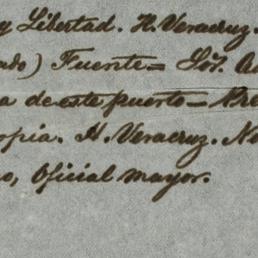 y Libertad. H. Veracruz.
ado) Fuente = Sor.
a de este puerto =
opia. H. Veracruz. No
o, Oficial mayor.